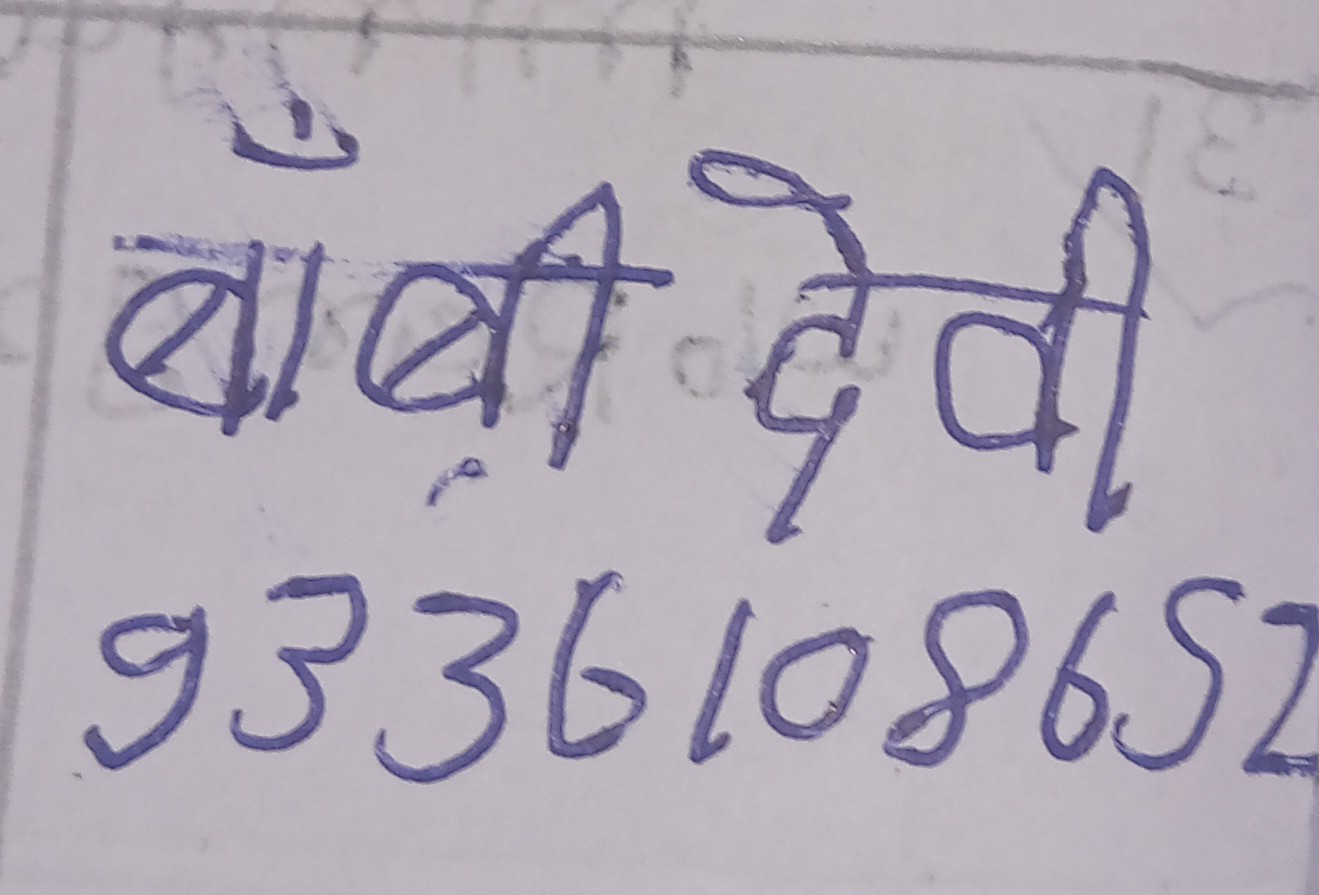 बाॅबी देवी
9336108652